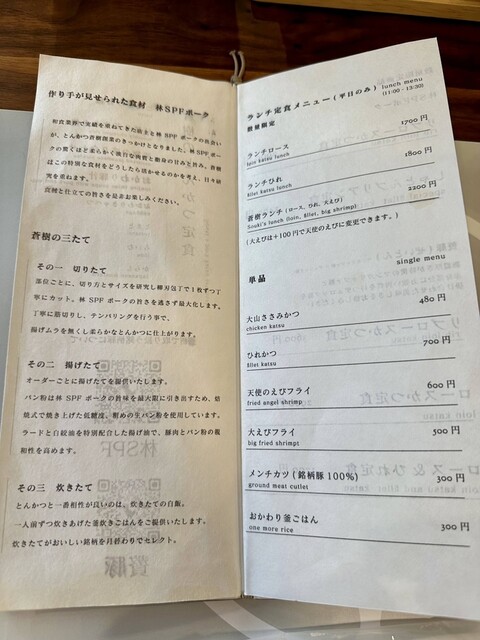 作り手が見せられた食材　林SPFポーク
和食業界で実績を重ねてきた店主と林 SPF ポークの出会い
が、とんかつ蒼樹創業のきっかけとなりました。林 SPFポー
クの驚くほど柔らかく淡白な肉質と脂身の甘みと旨み。蒼樹
はこの特別な食材をどうしたら活かせるのかを考え、日々研
究を重ねます。
食材と仕立ての旨さを是非お楽しみください。
蒼樹の三たて
その一　切りたて
部位ごとに、切り方とサイズを研究し柳刃包丁で1枚ずつ丁
寧にカット。林 SPF ポークの旨さを逃さず最大化します。
丁寧に筋切りし、テンパリングを行う事で、
揚げムラを無くし柔らかなとんかつに仕上がります。
その二　揚げたて
オーダーごとに揚げたてを提供いたします。
パン粉は林 SPF ポークの旨味を最大限に引き出すため、焙
焼式で焼き上げた低糖度、粗めの生パン粉を使用しています。
ラードと白絞油を特別配合した揚げ油で、豚肉とパン粉の親
和性を高めます。
その三　炊きたて
とんかつと一番相性が良いのは、炊きたての白飯。
一人前ずつ炊きあげた釜炊きごはんをご提供いたします。
炊きたてがおいしい銘柄を月替わりでセレクト。
ランチ定食メニュー (平日のみ) lunch menu
数量限定 (11:00 - 13:30)
1700 円
ランチロース
loin katsu lunch
1800 円
ランチひれ
fillet katsu lunch
2200 円
蒼樹ランチ (ロース, ひれ, 大えび)
Souki's lunch (loin, fillet, big shrimp)
(大えびは＋100円で天使のえびに変更できます。)
single menu
単品
480 円
大山ささみかつ
chicken katsu
700 円
ひれかつ
fillet katsu
600 円
天使のえびフライ
fried angel shrimp
500 円
大えびフライ
big fried shrimpt
300 円
メンチカツ (銘柄豚 100%)
ground meat cutlet
300 円
おかわり釜ごはん
one more rice